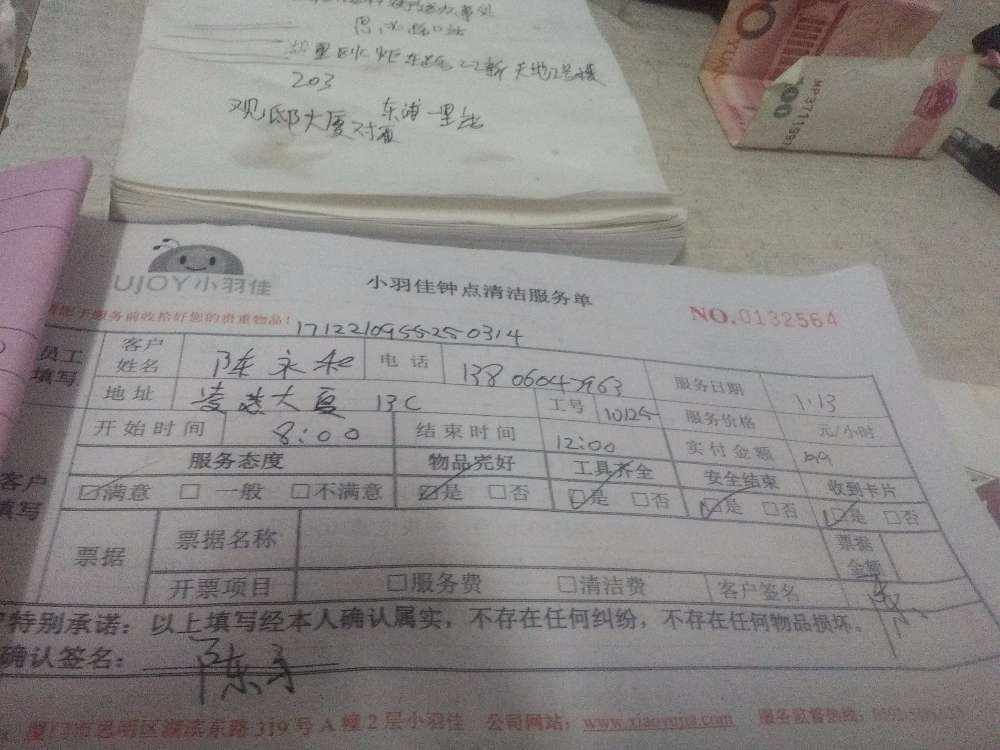 203
观邸大厦对面
东浦一里
YUAN
00
UJOY小羽佳
小羽佳钟点清洁服务单
NO.0132564
服务前收拾好您的贵重物品!
1712210955250314
员工填写
客户姓名 陈永和 电话 服务日期 1.13
地址 大厦 13C 工号 10125 服务价格 元/小时
开始时间 8:00 结束时间 12:00 实付金额
服务态度 物品完好 工具齐全 安全结束 收到卡片
客户填写
☑满意 □一般 □不满意 ☑是 □否 ☑是 □否 ☑是 □否 ☑是 □否
票据 票据名称 票据金额
开票项目 □服务费 □清洁费 客户签名
特别承诺:以上填写经本人确认属实,不存在任何纠纷,不存在任何物品损坏。
确认签名: 陈
厦门市思明区湖滨东路319号A幢2层小羽佳 公司网站:www.xiaoyujia.com 服务监督热线: